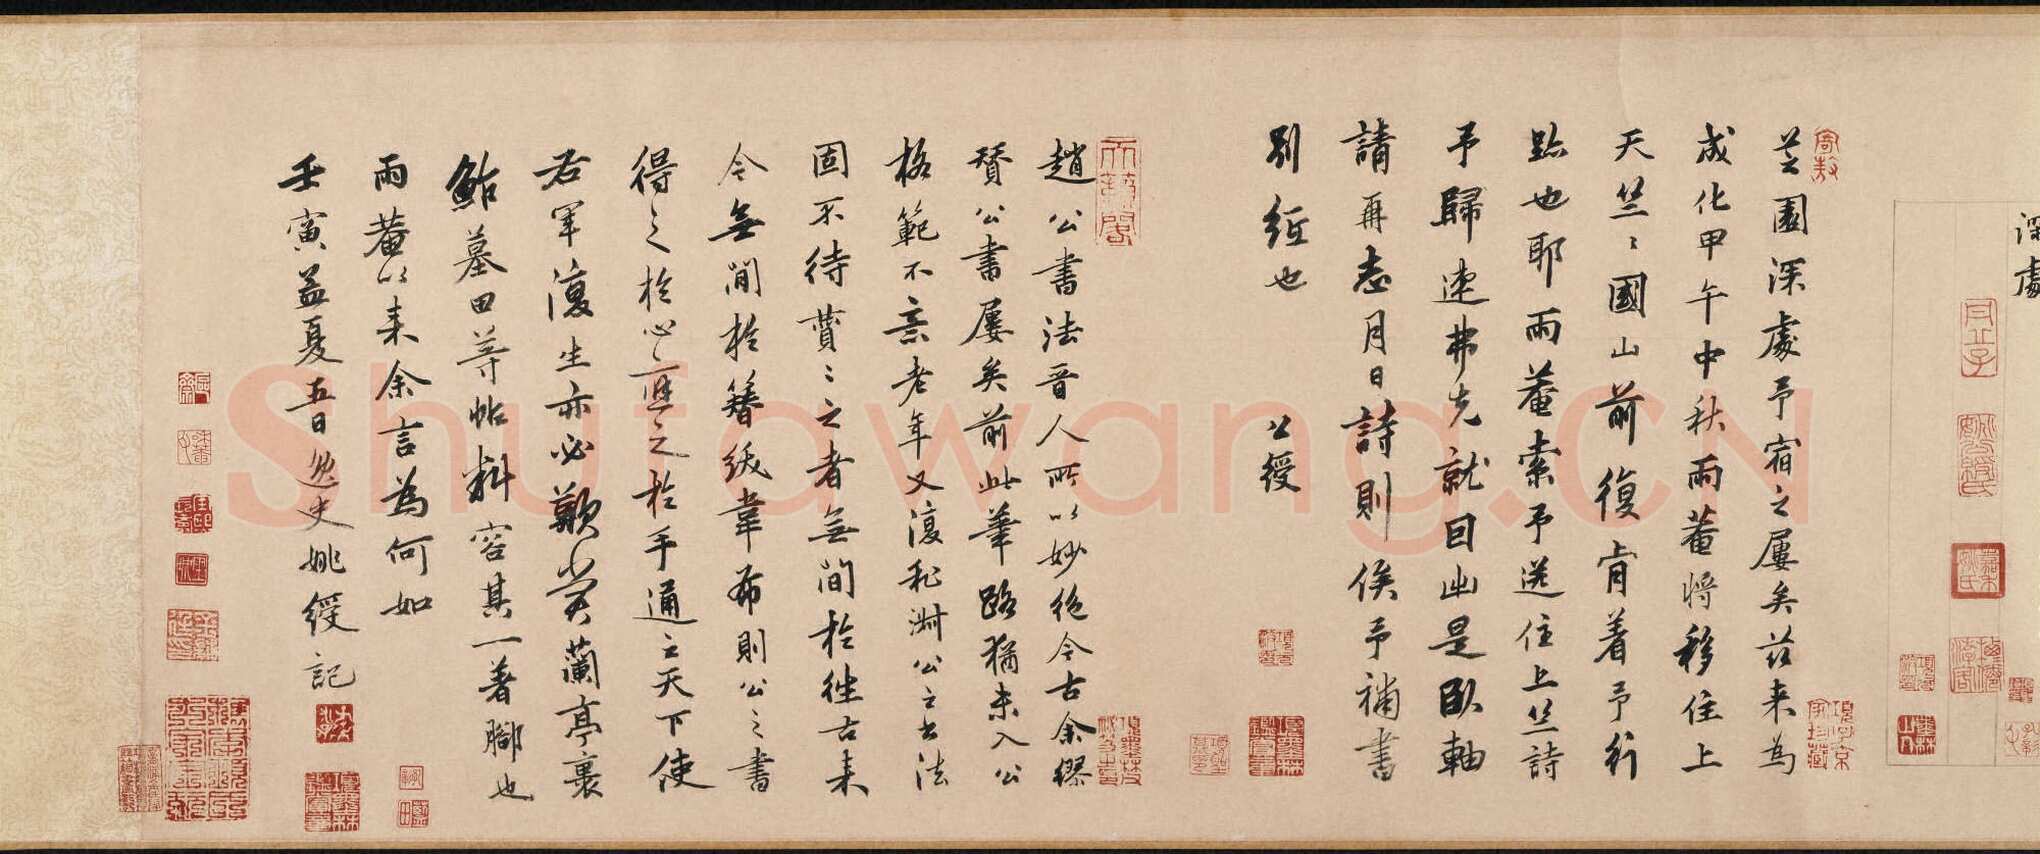 深處
芝園深處予宿之屢矣茲来為
成化甲午中秋雨菴將移住上
天竺〻國山前復肯着予行
跡也耶雨菴索予送住上竺詩
予歸速弗克就回出是臥軸
請再志月日詩則俟予補書
別紙也 公綬
趙公書法晋人所以妙絶今古余繆
賛公書屢矣前此筆路猶未入公
格範不意老年又復私淑公之書法
固不待賛〻之者無間於徃古来
今無間於簪紱韋布則公之書
得之於心應之於手通之天下使
右軍復生亦必歎賞蘭亭裹
鮓墓田等帖料容其一著腳也
雨菴以来余言為何如
壬寅孟夏五日逸史姚綬記
Shufawang.CN